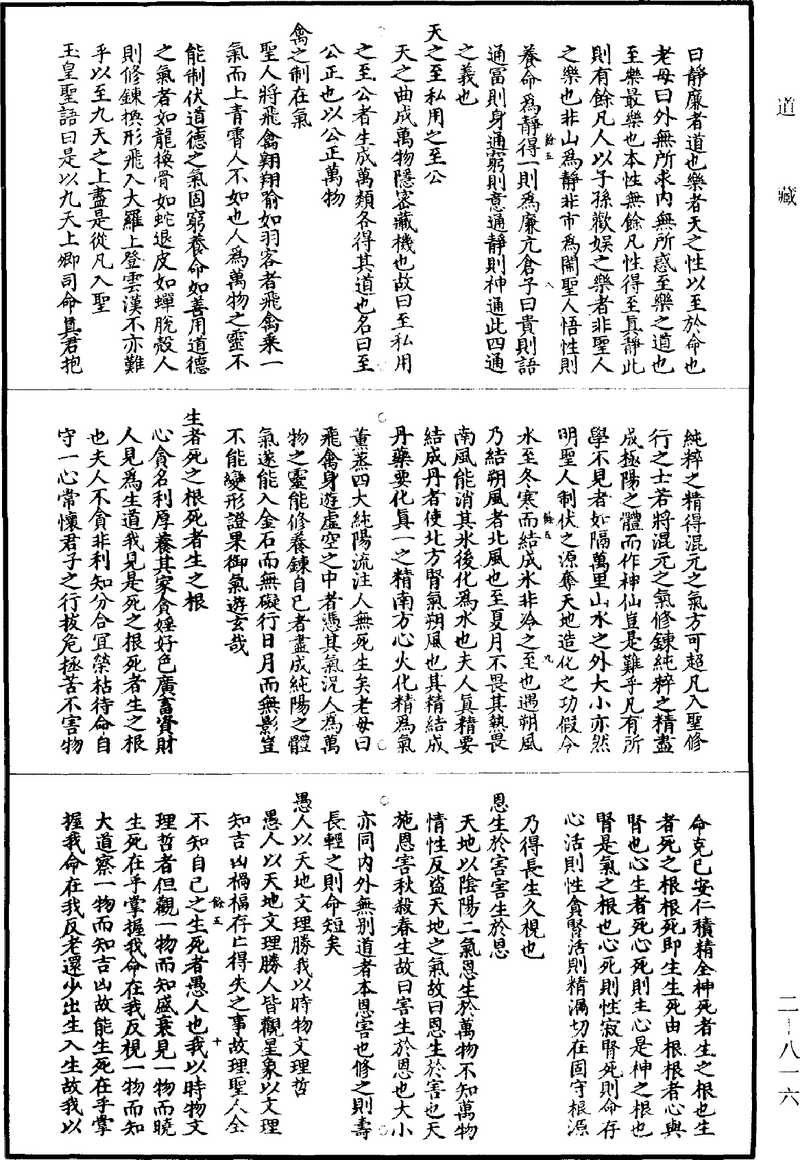 道藏
曰靜廉者道也樂者天之性以至於命也
老母曰外無所求內無所惑至樂之道也
至樂最樂也本性無餘凡性得至真靜此
則有餘凡人以子孫歡娛之樂者非聖人
之樂也非山為靜非市為鬧聖人悟性則
養命為靜得一則為廉亢倉子曰貴則語
通富則身通窮則意通靜則神通此四通
之義也
天之至私用之至公
天之曲成萬物隱密藏機也故曰至私用
之至公者生成萬類各得其道也名曰至
公正也以公正萬物
禽之制在氣
聖人將飛禽翱翔喻如羽客者飛禽乘一
氣而上青霄人不如也人為萬物之靈不
能制伏道德之氣固窮養命如善用道德
之氣者如龍換骨如蛇退皮如蟬脫殼人
則修鍊換形飛入大羅上登雲漢不亦難
乎以至九天之上盡是從凡入聖
玉皇聖語曰是以九天上卿司命真君抱
純粹之精得混元之氣方可超凡入聖修
行之士若將混元之氣修鍊純粹之精盡
成極陽之體而作神仙豈是難乎凡有所
學不見者如隔萬里山水之外大小亦然
明聖人制伏之源奪天地造化之功假令
水至冬寒而結成氷非冷之至也遇朔風
乃結朔風者北風也至夏月不畏其熱畏
南風能消其氷後化為水也夫人真精要
結成丹者使北方腎氣朔風也其精結成
丹藥要化真一之精南方心火化精為氣
薰蒸四大純陽流注人無死生矣老母曰
飛禽身遊虛空之中者憑其氣況人為萬
物之靈能修養鍊自己者盡成純陽之體
氣遂能入金石而無礙行日月而無影豈
不能變形證果御氣遊玄哉
生者死之根死者生之根
心貪名利厚養其家貪婬好色廣畜資財
人見為生道我見是死之根死者生之根
也夫人不貪非利知分合宜榮枯待命自
守一心常懷君子之行拔危拯苦不害物
命克己安仁積精全神死者生之根也生
者死之根根死即生生死由根根者心與
腎也心生者死心死則生心是神之根也
腎是氣之根也心死則性寂腎死則命存
心活則性貪腎活則精漏切在固守根源
乃得長生久視也
恩生於害害生於恩
天地以陰陽二氣恩生於萬物不知萬物
情性反盜天地之氣故曰恩生於害也天
施恩害秋殺春生故曰害生於恩也大小
亦同內外無別道者本恩害也修之則壽
長輕之則命短矣
愚人以天地文理勝我以時物文理哲
愚人以天地文理勝人皆觀星象以文理
知吉凶禍福存亡得失之事故理聖人全
不知自己之生死者愚人也我以時物文
理哲者但觀一物而知盛衰見一物而曉
生死在乎掌握我命在我反視一物而知
大道察一物而知吉凶故能生死在乎掌
握我命在我反老還少出生入生故我以
餘五 八
餘五 九
餘五 十
二－八一六